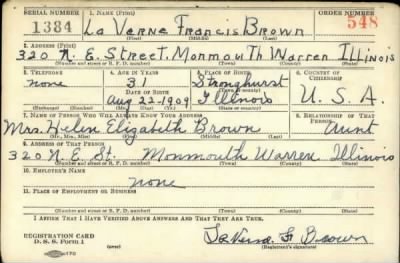 SERIAL NUMBER 1. NAME (Print) ORDER NUMBER
1384 La Verne Francis Brown 548
(First) (Middle) (Last)
2. ADDRESS (Print)
320 N. E. Street, Monmouth Warren Illinois
(Number and street or R. F. D. number) (Town) (County) (State)
3. TELEPHONE 4. AGE IN YEARS 5. PLACE OF BIRTH 6. COUNTRY OF CITIZENSHIP
none 31 Stronghurst
DATE OF BIRTH (Town or county)
Aug 22-1909 Illinois U. S. A.
(Exchange) (Number) (Mo.) (Day) (Yr.) (State or country)
7. NAME OF PERSON WHO WILL ALWAYS KNOW YOUR ADDRESS 8. RELATIONSHIP OF THAT PERSON
Mrs. Helen Elizabeth Brown Aunt
(Mr., Mrs., Miss) (First) (Middle) (Last)
9. ADDRESS OF THAT PERSON
320 N E. St. Monmouth Warren Illinois
(Number and street or R. F. D. number) (Town) (County) (State)
10. EMPLOYER'S NAME
none
11. PLACE OF EMPLOYMENT OR BUSINESS
(Number and street or R. F. D. number) (Town) (County) (State)
I AFFIRM THAT I HAVE VERIFIED ABOVE ANSWERS AND THAT THEY ARE TRUE.
REGISTRATION CARD
D. S. S. Form 1 LaVerne F Brown
(Registrant's signature)